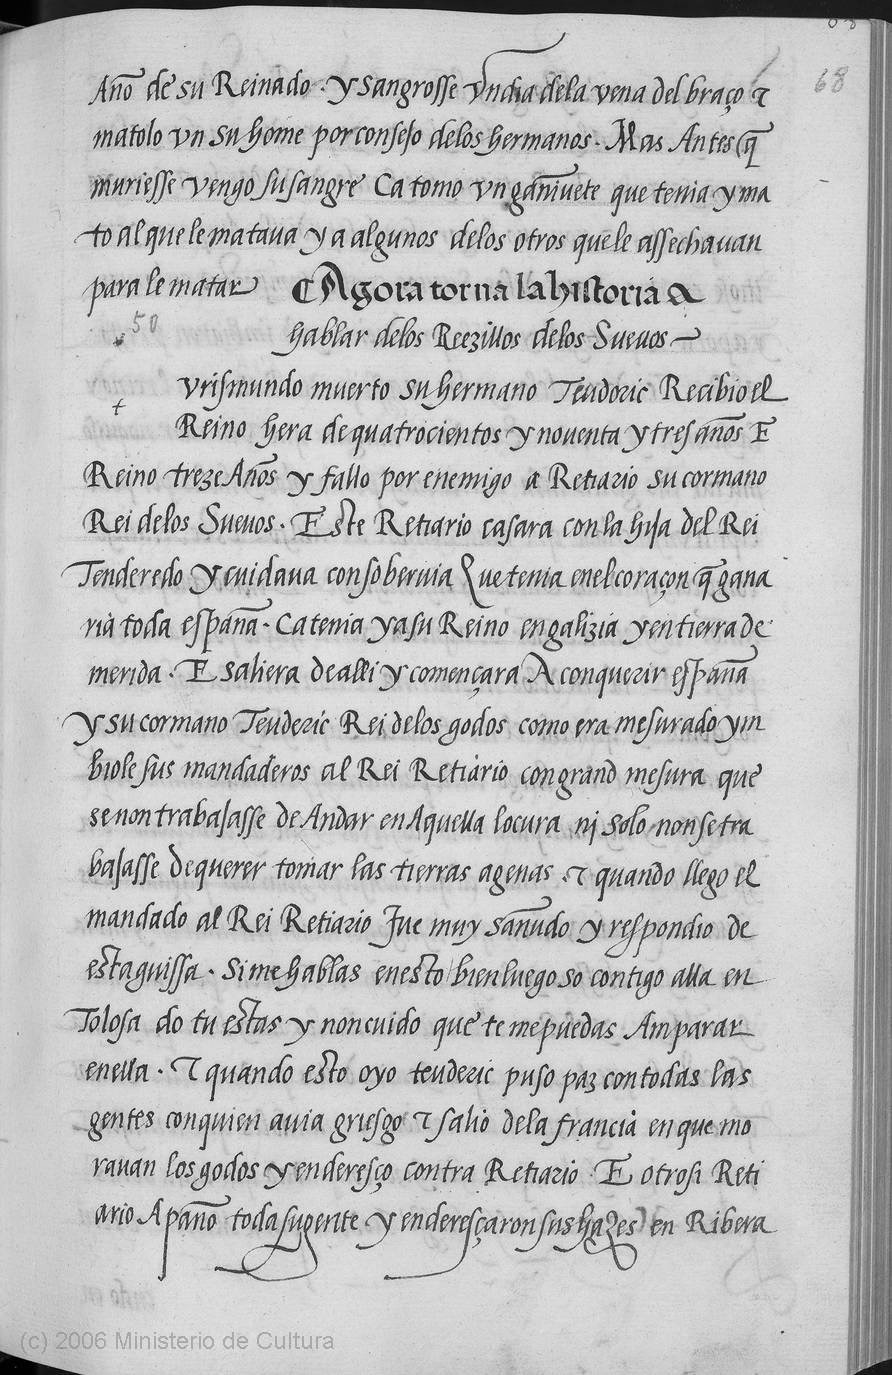 68
Año de su Reinado · y sangrosse vn dia dela vena del braço τ
matolo vn su home por consejo delos hermanos · Mas Antes q̃
muriesse vengo su sangre Ca tomo vn gañiuete que tenia y ma
to al que le mataua y a algunos delos otros que le assechauan
para le matar ¶ Agora torna la historia a
50
hablar delos Reezillos delos Sueuos —
vrismundo muerto su hermano Teudoric Recibio el
Reino hera de quatrocientos y nouenta y tres años E
Reino treze Años y fallo por enemigo a Retiario su cormano
Rei delos Sueuos · Este Retiario casara con la hija del Rei
Tenderedo y cuidaua con soberuia Que tenia en el coraçon q̃ gana
rià toda españa · Ca tenia ya su Reino en galizia y en tierra de
merida · E saliera de alli y començara A conquerir españa
y su cormano Teuderic Rei delos godos como era mesurado ym
biole sus mandaderos al Rei Retiario con grand mesura que
se non trabajasse de Andar en Aquella locura nj solo non se tra
bajasse de querer tomar las tierras agenas · τ quando llego el
mandado al Rei Retiario fue muy sañudo y respondio de
esta guissa · Si me hablas en esto bien luego so contigo alla en
Tolosa do tu estas y non cuido que te me puedas Amparar
en ella · τ quando esto oyo teuderic puso paz con todas las
gentes con quien auia griesgo τ salio dela francia en que mo
rauan los godos y enderesço contra Retiario · E otrosi Reti
ario Apaño toda su gente y enderesçaron sus hazes en Ribera
(c) 2006 Ministerio de Cultura